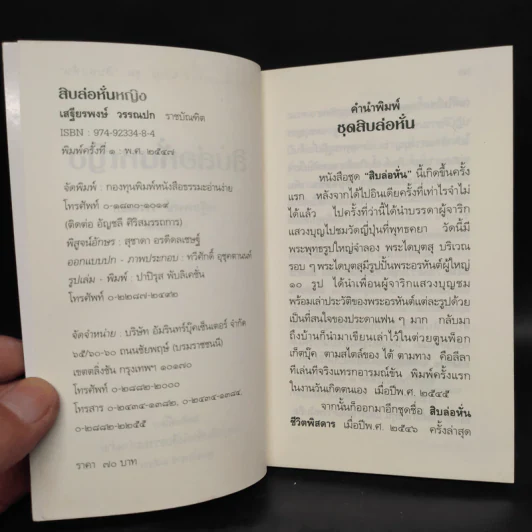 สิบล่อหั่นหญิง
เสฐียรพงษ์ วรรณปก ราชบัณฑิต
ISBN : 974-92334-8-4
พิมพ์ครั้งที่ ๑ : พ.ศ. ๒๕๔๗
จัดพิมพ์ : กองทุนพิมพ์หนังสือธรรมะอ่านง่าย
โทรศัพท์ ๐-๑๘๓๐-๑๐๑๙
(ติดต่อ อัญชลี ศิริสมรรถการ)
พิสูจน์อักษร : สุชาดา อรดีดลเชษฐ์
ออกแบบปก - ภาพประกอบ : ทวีศักดิ์ อุชุคตานนท์
รูปเล่ม - พิมพ์ : ปาปิรุส พับลิเคชั่น
โทรศัพท์ ๐-๒๒๘๗-๒๔๙๒
จัดจำหน่าย : บริษัท อัมรินทร์บุ๊คเซ็นเตอร์ จำกัด
๖๕/๖๐-๖๐ ถนนชัยพฤษ์ (บรมราชชนนี)
เขตตลิ่งชัน กรุงเทพฯ ๑๐๑๗๐
โทรศัพท์ ๐-๒๘๘๒-๒๐๐๐
โทรสาร ๐-๒๔๓๔-๑๓๘๒, ๐-๒๔๓๔-๑๓๘๔,
๐-๒๘๘๒-๒๒๕๕
ราคา ๗๐ บาท
คำนำพิมพ์
ชุดสิบล่อหั่น
หนังสือชุด “สิบล่อหั่น” นี้เกิดขึ้นครั้ง
แรก หลังจากได้ไปอินเดียครั้งที่เท่าไรจำไม่
ได้แล้ว ไปครั้งที่ว่านี้ได้นำบรรดาผู้จาริก
แสวงบุญไปชมวัดญี่ปุ่นที่พุทธคยา วัดนี้มี
พระพุทธรูปใหญ่จำลอง พระไดบุตสุ บริเวณ
รอบ ๆ พระไดบุตสุมีรูปปั้นพระอรหันต์ผู้ใหญ่
๑๐ รูป ได้นำเพื่อนผู้จาริกแสวงบุญชม
พร้อมเล่าประวัติของพระอรหันต์แต่ละรูปด้วย
เป็นที่สนใจของประดาแฟน ๆ มาก กลับมา
ถึงบ้านก็นำมาเขียนเล่าไว้ในด่วยตูนพ็อก
เก็ตบุ๊ค ตามสไตล์ของ ไต้ ตามทาง คือลีลา
ทีเล่นทีจริงแทรกอารมณ์ขัน พิมพ์ครั้งแรก
ในงานวันเกิดตนเอง เมื่อปีพ.ศ. ๒๕๔๕
จากนั้นก็ออกมาอีกชุดชื่อ สิบล่อหั่น
ชีวิตพิสดาร เมื่อปีพ.ศ. ๒๕๔๖ ครั้งล่าสุด